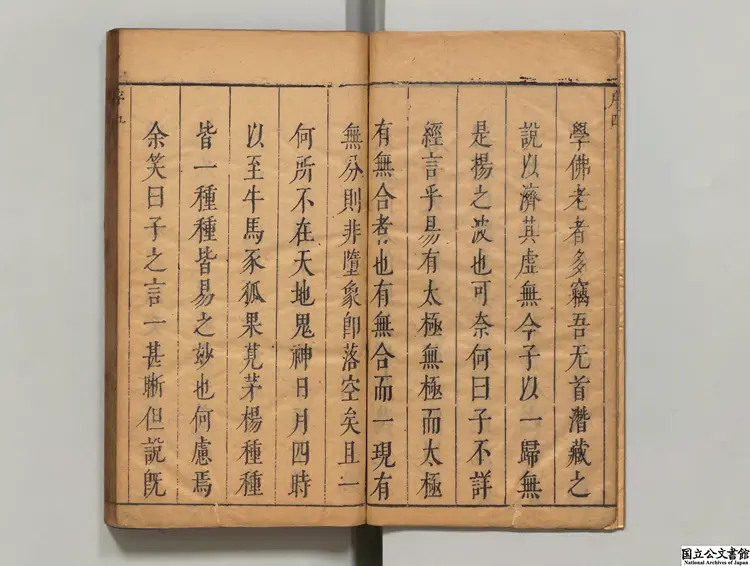 學佛老者多竊吾无首潛藏之
說以濟其虛無今子以一歸無
是楊之波也可奈何曰子不詳
經言乎易有太極無極而太極
有無合者也有無合而一現有
無分則非墮象卽落空矣且一
何所不在天地鬼神日月四時
以至牛馬豕狐果莧茅楊種種
皆一種種皆易之妙也何慮焉
余笑曰子之言一甚晰但說旣
序四
国立公文書館
National Archives of Japan